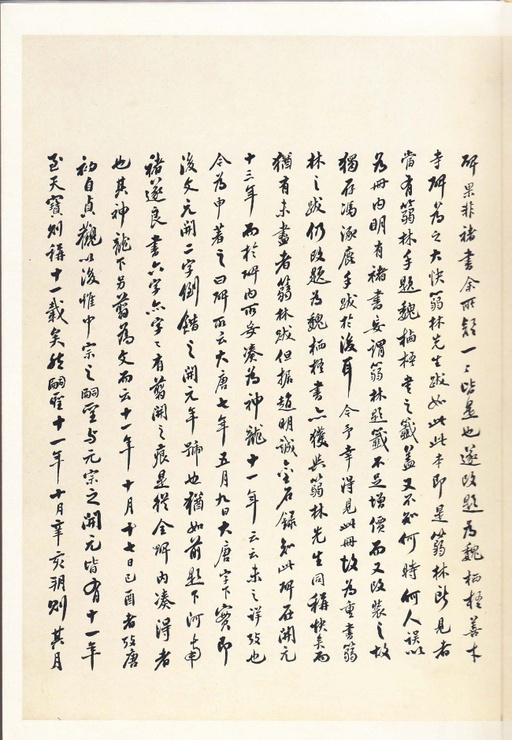 碑果非褚書余所類一一皆是也遂改題為魏栖梧善才
寺碑為之大快蒻林先生跋如此此本即是蒻林所見者
當有蒻林手題魏栖梧書之籤蓋又不知何時何人誤以
為冊內明有褚書妄謂蒻林題籤不足增價而又改裝之故
獨存馮涿鹿手跋於後耳今予幸得見此冊故為重書蒻
林之跋仍改題為魏栖梧書亦獲與蒻林先生同稱快矣而
猶有未盡者蒻林跋但據趙明誠金石錄知此碑在開元
十三年而於碑內所妄湊為神龍十一年云云未之詳攷也
今為申著之曰碑所云大唐七年五月九日大唐字下實即
後文元開二字倒錯之開元年號也猶如前題下河南
褚遂良書六字亦字字有翦開之痕是從全碑內湊得者
也其神龍下另翦為文而云十一年十月十七日己酉者攷唐
初自貞觀以後惟中宗之嗣聖与元宗之開元皆有十一年
至天寶則稱十一載矣然嗣聖十一年十月辛亥朔則其月